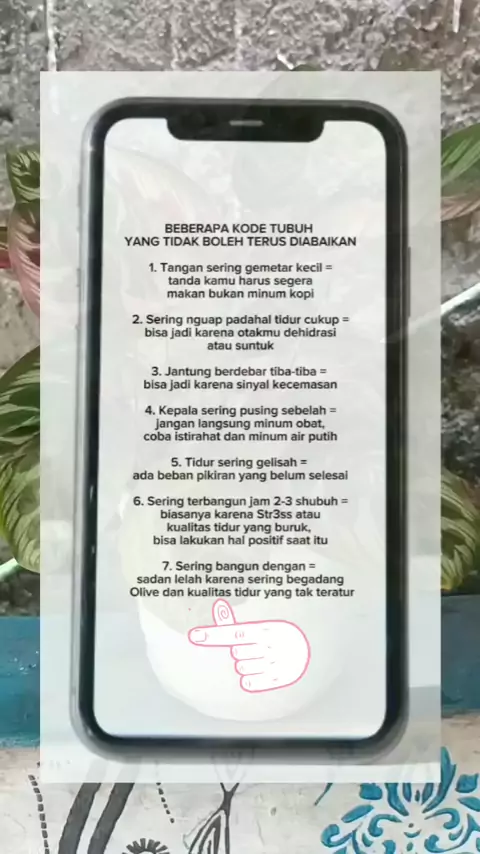 BEBERAPA KODE TUBUH
YANG TIDAK BOLEH TERUS DIABAIKAN
1. Tangan sering gemetar kecil =
tanda kamu harus segera
makan bukan minum kopi
2. Sering nguap padahal tidur cukup =
bisa jadi karena otakmu dehidrasi
atau suntuk
3. Jantung berdebar tiba-tiba =
bisa jadi karena sinyal kecemasan
4. Kepala sering pusing sebelah =
jangan langsung minum obat,
coba istirahat dan minum air putih
5. Tidur sering gelisah =
ada beban pikiran yang belum selesai
6. Sering terbangun jam 2-3 shubuh =
biasanya karena Str3ss atau
kualitas tidur yang buruk,
bisa lakukan hal positif saat itu
7. Sering bangun dengan =
sadan lelah karena sering begadang
Olive dan kualitas tidur yang tak teratur